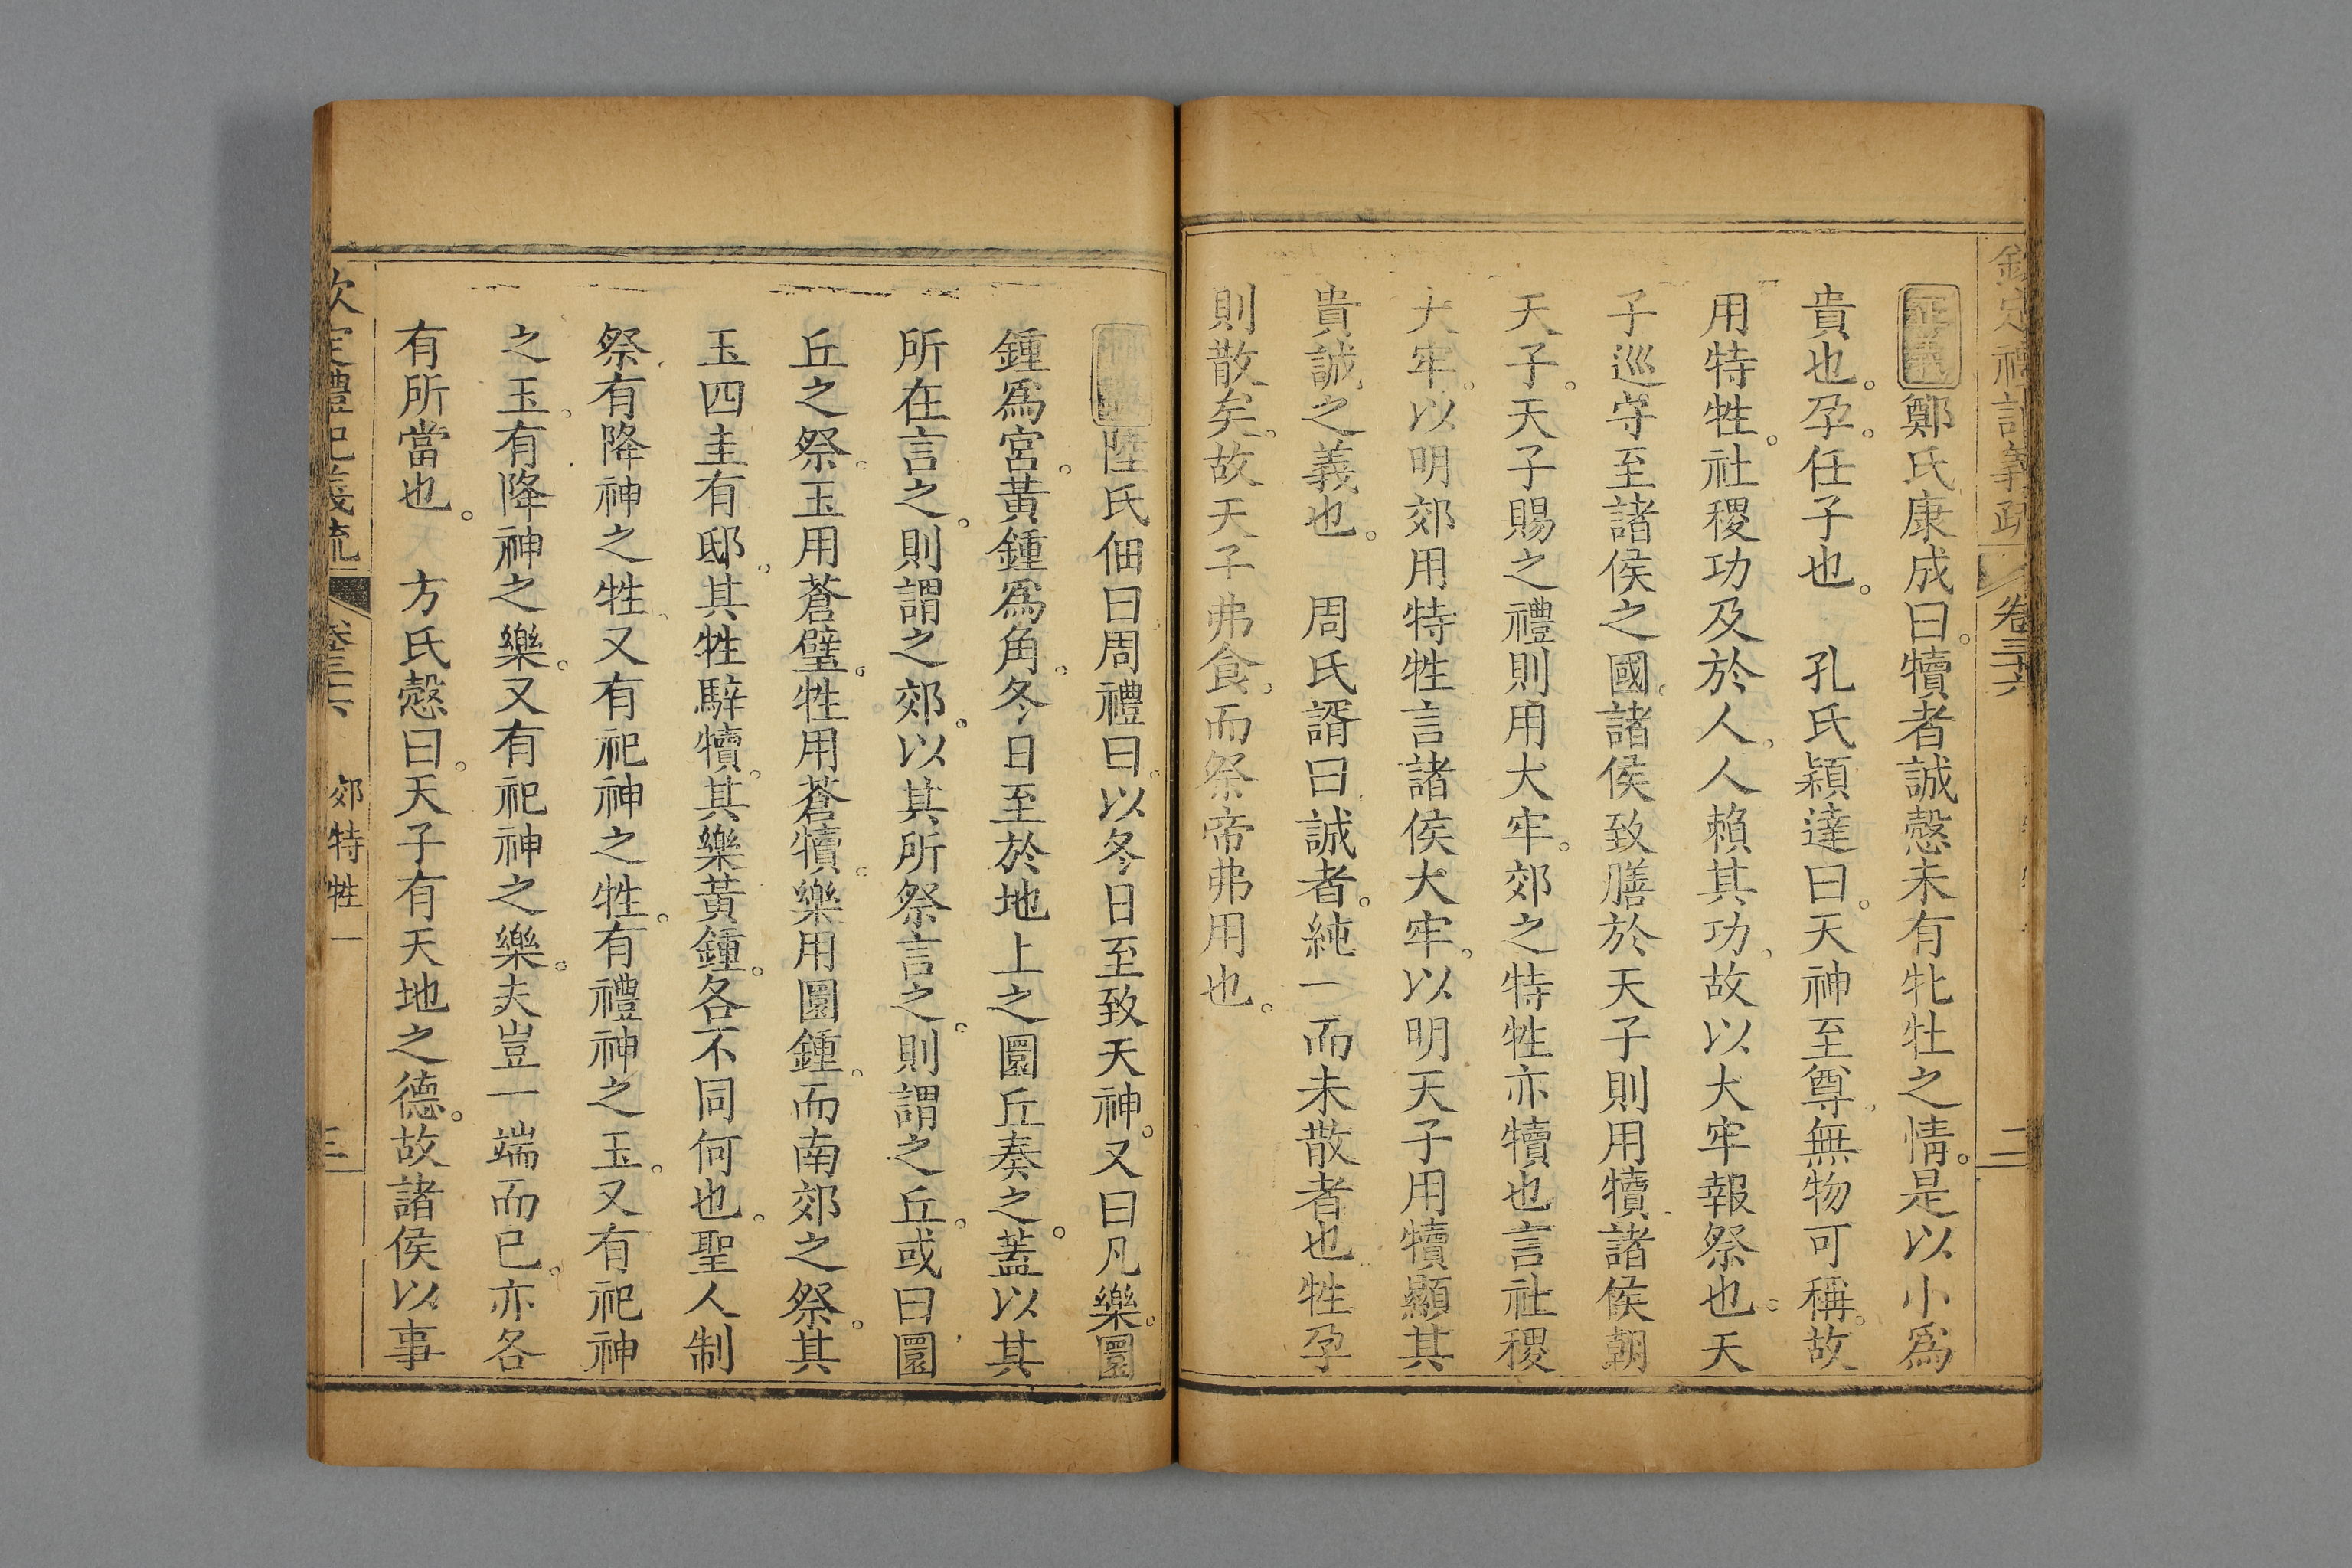 欽定禮記義疏 卷三十六 二
正義鄭氏康成曰。犢者誠慤未有牝牡之情。是以小爲
貴也。孕。任子也。 孔氏穎達曰。天神至尊、無物可稱。故
用特牲。社稷功及於人、人賴其功、故以大牢報祭也。天
子巡守至諸侯之國。諸侯致膳於天子則用犢諸侯朝
天子。天子賜之禮則用大牢。郊之特牲亦犢也言社稷
大牢。以明郊用特牲言諸侯大牢。以明天子用犢顯其
貴誠之義也。 周氏諝曰誠者。純一而未散者也牲孕
則散矣。故天子弗食。而祭帝弗用也。
陸氏佃曰周禮曰。以冬日至致天神。又曰凡樂。圜
鍾爲宮。黃鍾爲角。冬日至於地上之圜丘奏之。蓋以其
所在言之。則謂之郊。以其所祭言之。則謂之丘。或曰圜
丘之祭。玉用蒼璧。牲用蒼犢。樂用圜鍾。而南郊之祭。其
玉四圭有邸、其牲騂犢。其樂黃鍾。各不同何也。聖人制
祭有降神之牲、又有祀神之牲。有禮神之玉。又有祀神
之玉。有降神之樂。又有祀神之樂。夫豈一端而已。亦各
有所當也。 方氏慤曰。天子有天地之德。故諸侯以事
欽定禮記義疏 卷三十六 郊特牲一 三